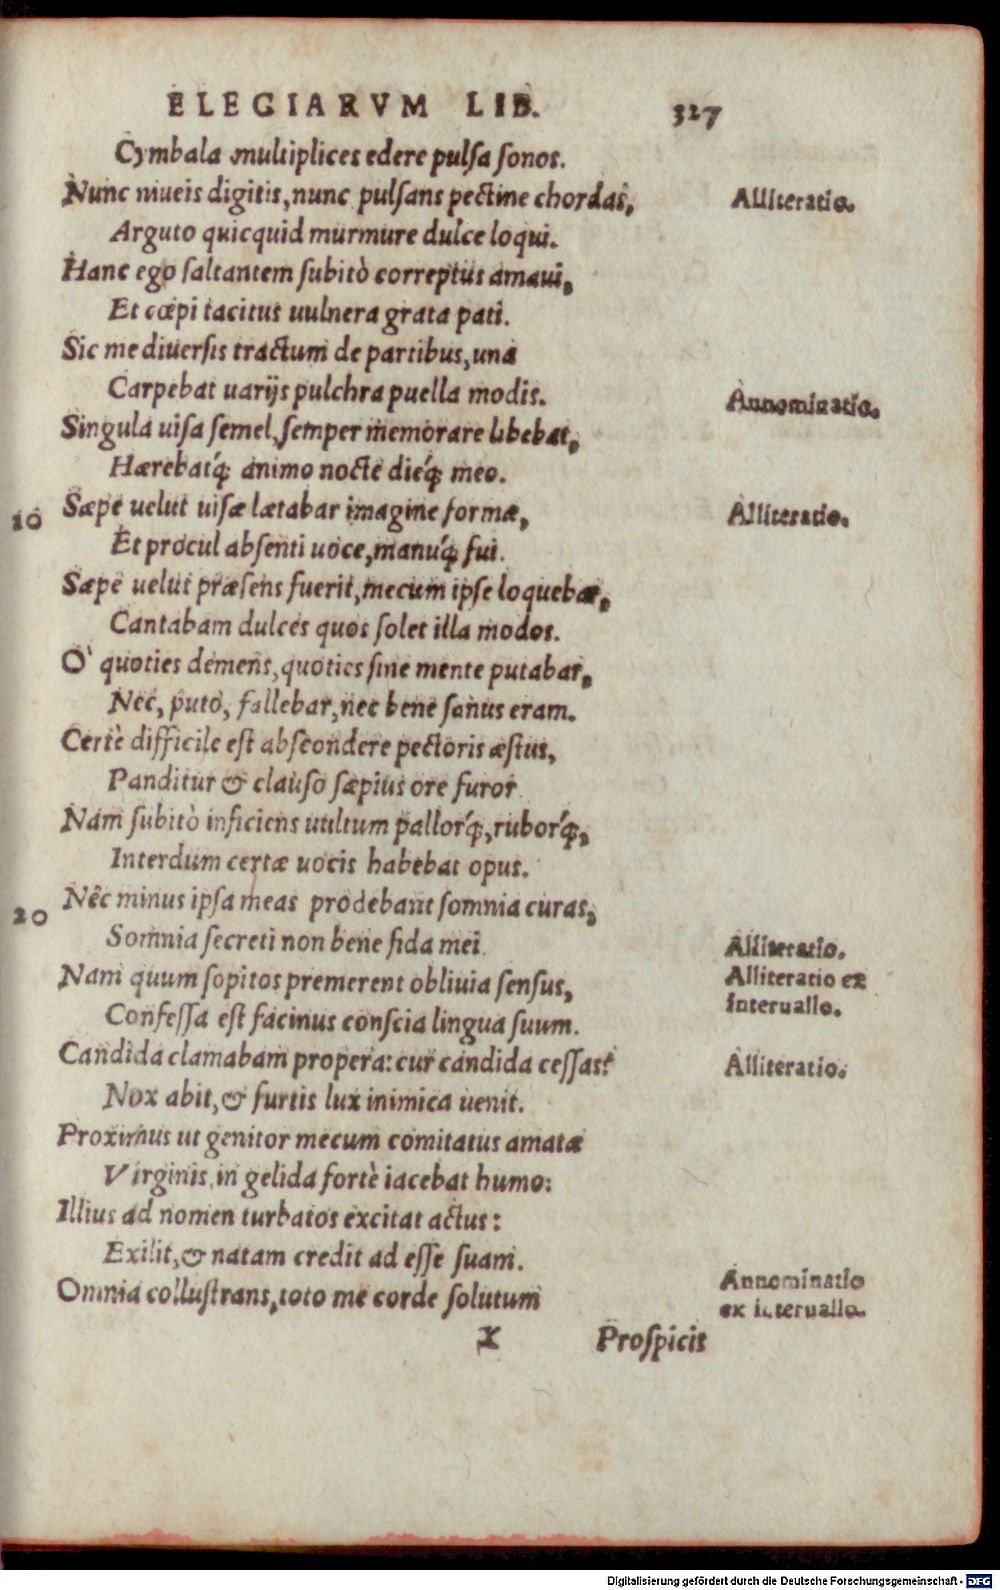 ELEGIARVM LIB. 327
Cymbala multiplices edere pulſa ſonos.
Nunc niueis digitis, nunc pulſans pectine chordas, Alliteratio.
Arguto quicquid murmure dulce loqui.
Hanc ego ſaltantem ſubitò correptus amaui,
Et cœpi tacitus uulnera grata pati.
Sic me diuerſis tractum de partibus, una
Carpebat uarijs pulchra puella modis. Annominatio.
Singula uiſa ſemel, ſemper memorare libebat,
Hærebatq́; animo nocte dieq́; meo.
10 Sæpe uelut uiſæ lætabar imagine formæ, Alliteratio.
Et procul abſenti uoce, manuq́; fui.
Sæpe uelut præſens fuerit, mecum ipſe loquebar,
Cantabam dulces quos ſolet illa modos.
O' quoties demens, quoties ſine mente putabar,
Nec, puto, fallebar, nec bene ſanus eram.
Certè difficile eſt abſcondere pectoris æſtus,
Panditur & clauſo ſæpius ore furor
Nam ſubitò inficiens uultum pallorq́;, ruborq́;,
Interdum certæ uocis habebat opus.
20 Nêc minus ipſa meas prodebant ſomnia curas,
Somnia ſecreti non bene fida mei. Alliteratio.
Nam quum ſopitos premerent obliuia ſenſus, Alliteratio ex
Confeſſa eſt facinus conſcia lingua ſuum. interuallo.
Candida clamabam propera: cur candida ceſſas? Alliteratio.
Nox abit, & furtis lux inimica uenit.
Proximus ut genitor mecum comitatus amatæ
Virginis, in gelida fortè iacebat humo:
Illius ad nomen turbatos excitat actus:
Exilit, & natam credit ad eſſe ſuam.
Omnia colluſtrans, toto me corde ſolutum Annominatio
ex interuallo.
X Proſpicit
Digitalisierung gefördert durch die Deutsche Forschungsgemeinschaft - DFG